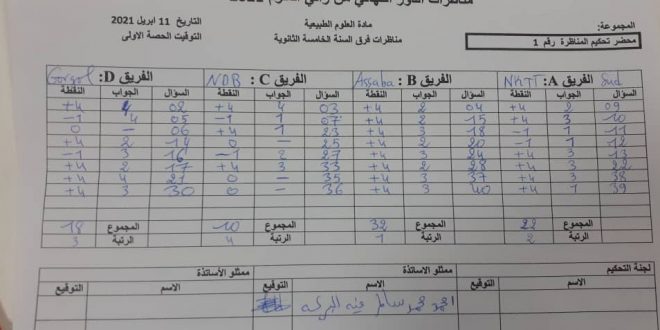 المجموعة: مادة العلوم الطبيعية التاريخ 11 ابريل 2021
محضر تحكيم المناظرة رقم 1 مناظرات فرق السنة الخامسة الثانوية التوقيت الحصة الاولى
الفريق A: NKTT Sud الفريق B: Assaba الفريق C: NDB الفريق D: Gorgol
السؤال الجواب النقطة السؤال الجواب النقطة السؤال الجواب النقطة السؤال الجواب النقطة
09 2 +4 04 2 +4 03 4 +4 02 4 +4
10 3 +4 15 2 +4 07 1 -1 05 4 -1
11 1 -1 18 3 +4 23 1 +4 06 – 0
12 1 -1 20 2 +4 25 – 0 14 2 +4
13 3 +4 24 3 +4 27 2 -1 16 3 -1
22 3 +4 28 2 +4 33 3 +4 17 2 +4
38 3 +4 37 3 +4 35 – 0 21 4 +4
39 1 +4 40 3 +4 36 – 0 30 3 +4
المجموع 22 المجموع 32 المجموع 10 المجموع 18
الرتبة 2 الرتبة 1 الرتبة 4 الرتبة 3
لجنة التحكيم ممثلو الأساتذة ممثلو الأساتذة
الاسم التوقيع الاسم التوقيع الاسم التوقيع